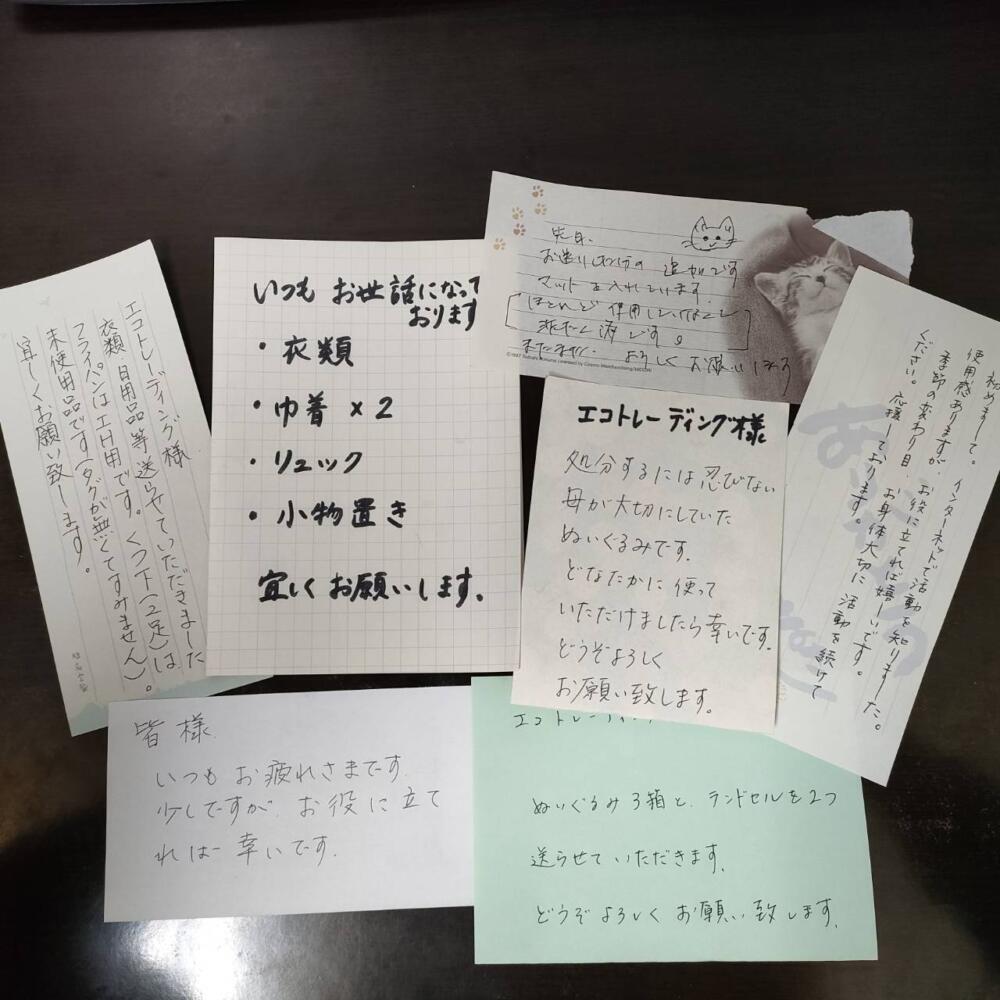 エコトレーディング様
衣類 日用品等送らせていただきました
フライパンはIH用です。くつ下(2足)は、
未使用品です(タグが無くてすみません)。
宜しくお願い致します。
いつも お世話になって
おります
・衣類
・巾着 ×2
・リュック
・小物置き
宜しくお願いします。
先日、
お送りした 追加です
マットを入れています。
ほとんど使用していない
よろしくお願いします
エコトレーディング様
処分するには忍びない
母が大切にしていた
ぬいぐるみです。
どなたかに使って
いただけましたら幸いです。
どうぞよろしく
お願い致します。
初めまして。インターネットで活動を知りました。
使用感ありますが、お役に立てれば嬉しいです。
季節の変わり目、お身体大切に活動を続けて
ください。応援しております。
皆様
いつもお疲れさまです。
少しですが、お役に立て
れば幸いです。
エコトレーディング
ぬいぐるみ3箱と、ランドセルを2つ
送らせていただきます。
どうぞよろしくお願い致します。